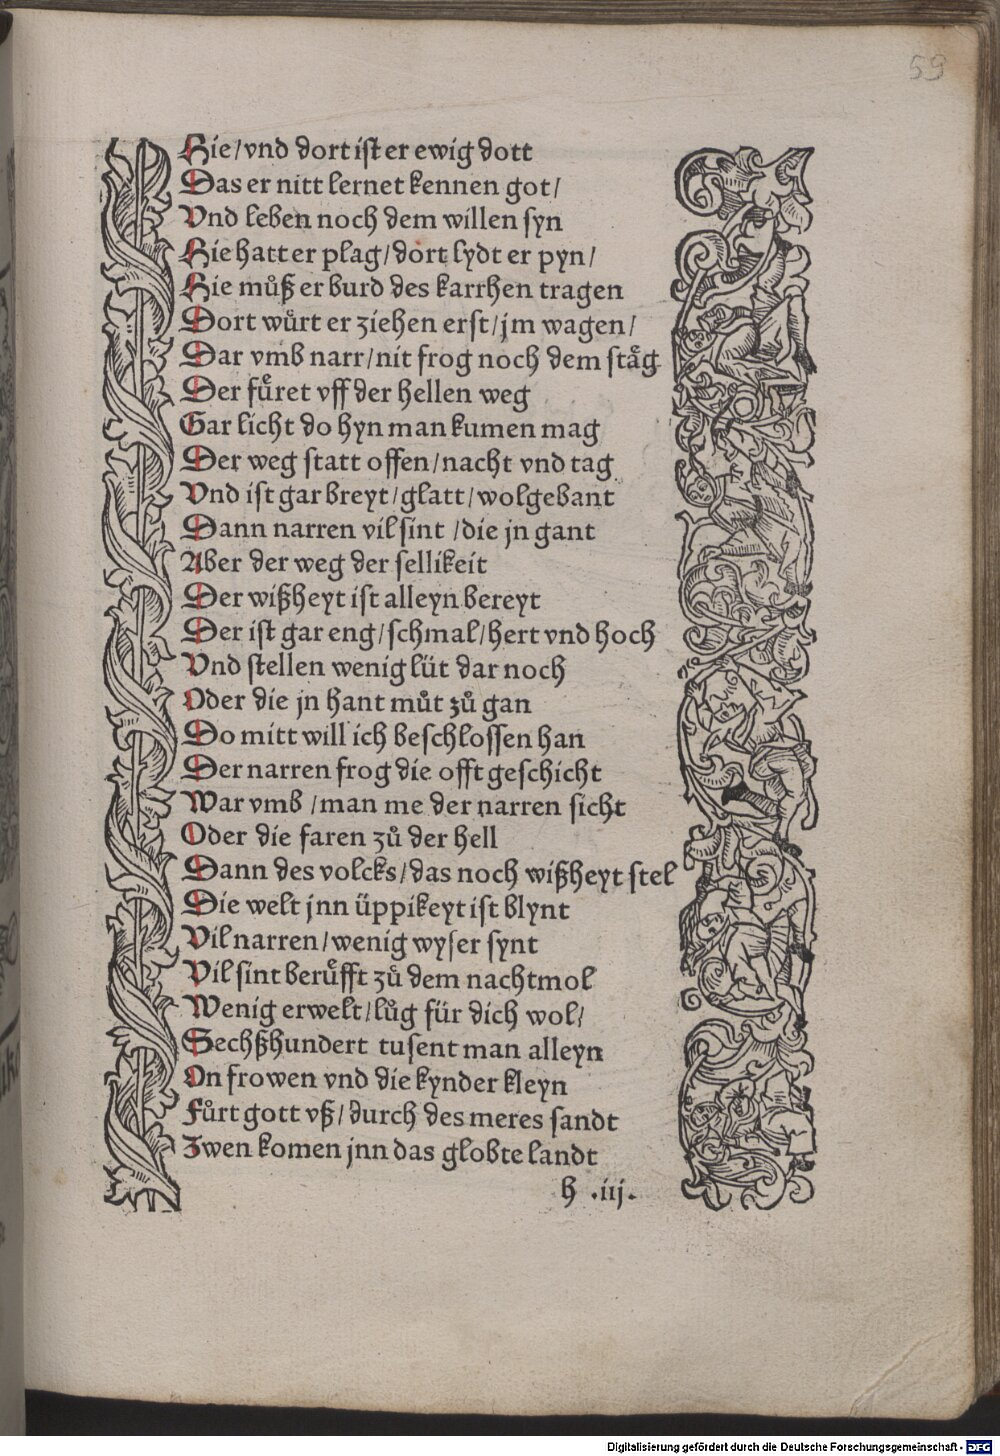 59
Hie/vnd dort ist er ewig dott
Das er nitt lernet kennen got/
Vnd leben noch dem willen syn
Hie hatt er plag/dort lydt er pyn/
Hie můß er burd des karrhen tragen
Dort wůrt er ziehen erst/jm wagen/
Dar vmb narr/nit frog noch dem ståg
Der fůret vff der hellen weg
Gar licht do hyn man kumen mag
Der weg statt offen/nacht vnd tag
Vnd ist gar breyt/glatt/wolgebant
Dann narren vil sint /die jn gant
Aber der weg der sellikeit
Der wißheyt ist alleyn bereyt
Der ist gar eng/schmal/hert vnd hoch
Vnd stellen wenig lüt dar noch
Oder die jn hant můt zů gan
Do mitt will ich beschlossen han
Der narren frog die offt geschicht
War vmb /man me der narren sicht
Oder die faren zů der hell
Dann des volcks/das noch wißheyt stel
Die welt jnn üppikeyt ist blynt
Vil narren/wenig wyser synt
Vil sint berůfft zů dem nachtmol
Wenig erwelt/lůg für dich wol/
Sechßhundert tusent man alleyn
On frowen vnd die kynder kleyn
Fůrt gott vß/durch des meres sandt
Zwen komen jnn das globte landt
h .iij.
Digitalisierung gefördert durch die Deutsche Forschungsgemeinschaft - DFG